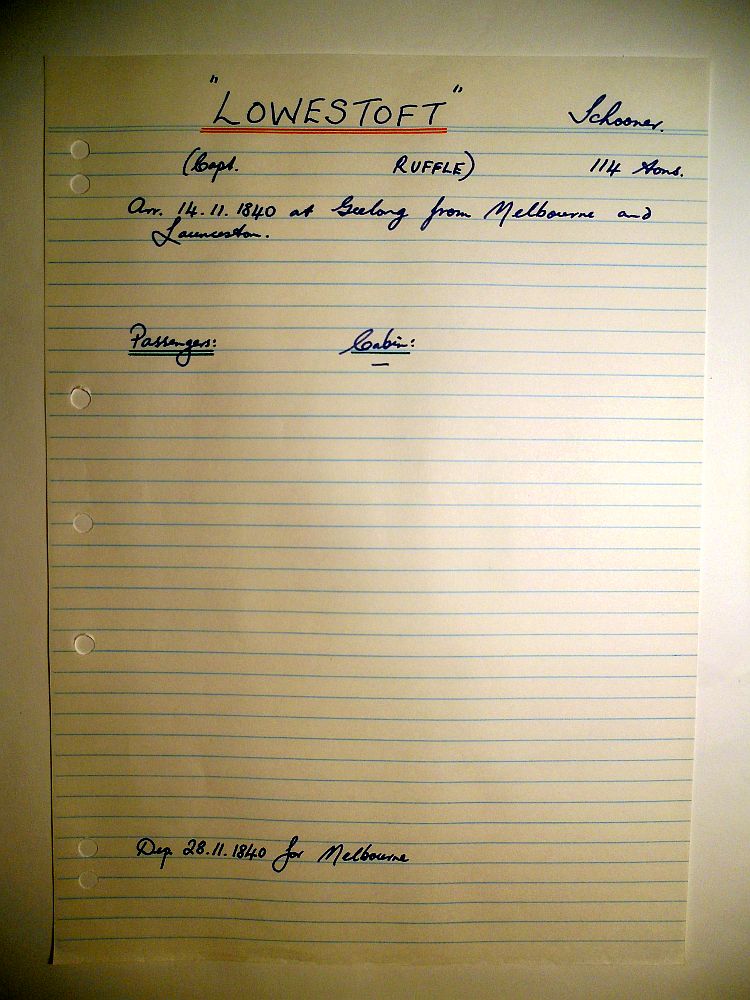 "LOWESTOFT" Schooner.
(Capt. RUFFLE) 114 tons.
Arr. 14.11.1840 at Geelong from Melbourne and
Launceston.
Passengers: Cabin:
—
Dep. 28.11.1840 for Melbourne